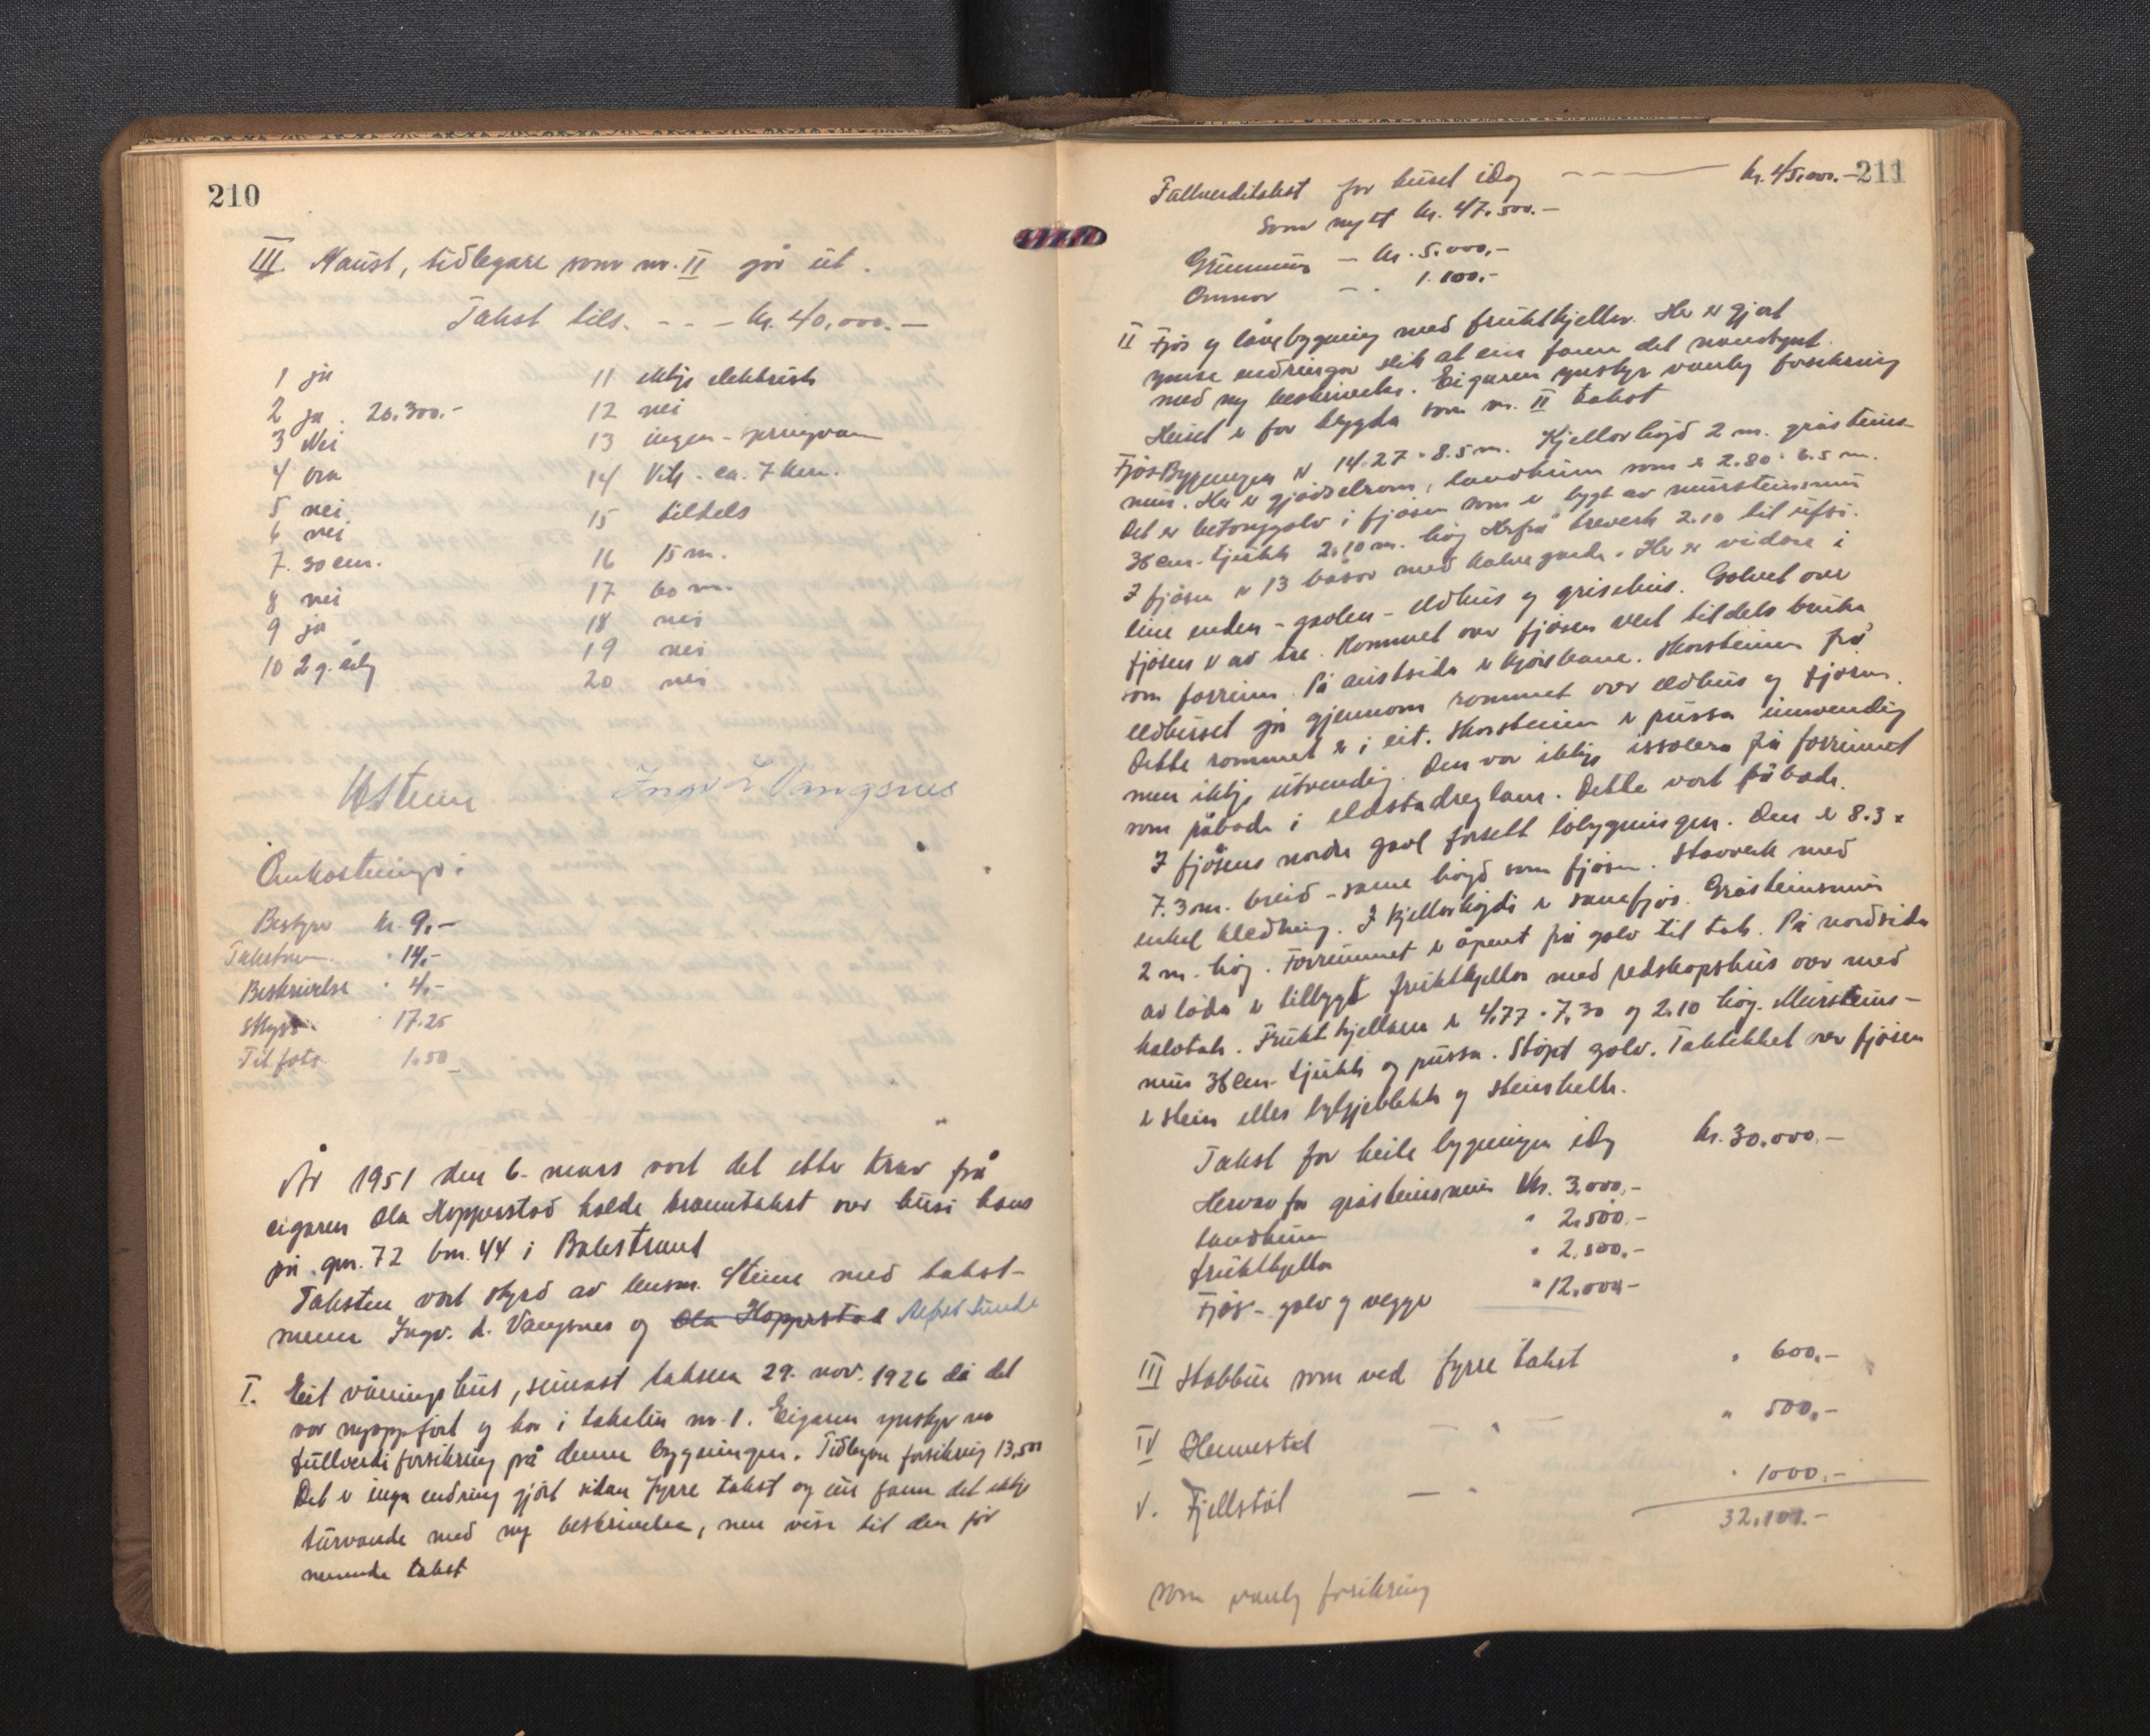 210
III. Naust, tidlegare som nr. II går ut.
Takst tils. - - - kr. 40,000.-
1 ja
2 ja. 26.300.-
3 Nei
4 bra
5 nei
6 nei
7. 30 cm.
8 nei
9 ja
10 2 g. årleg
11 ekkje elektrisk
12 nei
13 ingen - springvatn
14 Vik. ca. 7 km.
15 tildels
16 15 m.
17 60 m.
18 nei
19 nei
20 nei
Steine Ingv L Vangsnes
Omkostningar:
Bestyrar kr. 9.-
Takstmenn " 14.-
Beskrivelse " 4.-
Skyss " 17.25
Til fots 1.50
År 1951 den 6. mars vart det etter krav frå
eigaren Ola Hopperstad halde branntakst over husi hans
på gnr. 72 bnr. 44 i Balestrand
Taksten vart styrd av lensm. Steine med takst-
menn Ingv. L. Vangsnes og Ola Hopperstad
I. Eit våningshus, seinast taksera 29. nov. 1926 då det
var nyoppført og har i takstin nr. 1. Eigaren ynskjer no
fullverdiforsikring på denne bygningen. Tidlegare forsikring 13,500
Det er inga endring gjort sidan fyrre takst og ein fann det ikkje
turvande med ny beskrivelse, men viser til den før
nemnde takst
211
Fullverditakst for huset idag - - - kr. 45,000.-
Som nytt kr. 47.500.-
Grunnmur - kr. 5.000,-
Omnar - . 1.100.-
II Fjøs og løebygning med fruktkjellar. Her er gjort
ymse endringar slik at ein fann det naudsynt
med ny beskrivelse. Eigaren ynskjer vanleg forsikring
Huset er før bygda som nr. II takst
Fjøs-Bygningen er 14.27 x 8.5 m. Kjellarhøgd 2 m. gråsteins-
mur. Her er gjødselrom, landkum som er 2.80 x 6.5 m.
Det er betonggolv i fjøsen som er bygt av mursteinsmur
38 cm. tjukk 2.10 m. høg Herfrå treverk 2.10 til ufsi.
I fjøsen er 13 båsar med kalvegarde. Her er vidare i
eine enden - gavlen - eldhus og grisehus. Golvet over
fjøsen er av tre. Rommet over fjøsen vert tildels bruka
som forrum. På austsida er kjørebane. Skorsteinen frå
eldhuset går gjennom rommet over eldhus og fjøsen.
Dette rommet er i eit. Skorsteinen er pussa innvendig
men ikkje utvendig. Den var ikkje issolera frå forrumet
som påbode i eldstadreglane. Dette vart påbode.
I fjøsens nordre gavl forsett løbygningen. Den er 8.3 x
7.3 m. breid - same høgd som fjøsen. Stavverk med
enkel kledning. I kjellarhøgdi er sauefjøs. Gråsteinsmur
2 m. høg. Forrummet er åpent frå golv til tak. På nordsida
av løda er tilbygt fruktkjellar med redskapshus over med
halvtak. Fruktkjellaren er 4,77 x 7,30 og 2.10 høg. Mursteins-
mur 38 cm. tjukk og pussa. Støpt golv. Taktekket over fjøsen
er stein elles bylgjeblekk og steinhelle.
Takst for heile bygningen idag kr. 30.000.-
Herav for gråsteinsmur kr. 3,000,-
Landkum " 2.500.-
Fruktkjellar " 2.500.-
Fjøs - golv og vegger " 12.000-
III Stabbur som ved fyrre takst " 600,-
IV Heimestøl - " - " 500,-
V. Fjellstøl - " " 1000.-
32.100.-
som vanleg forsikring